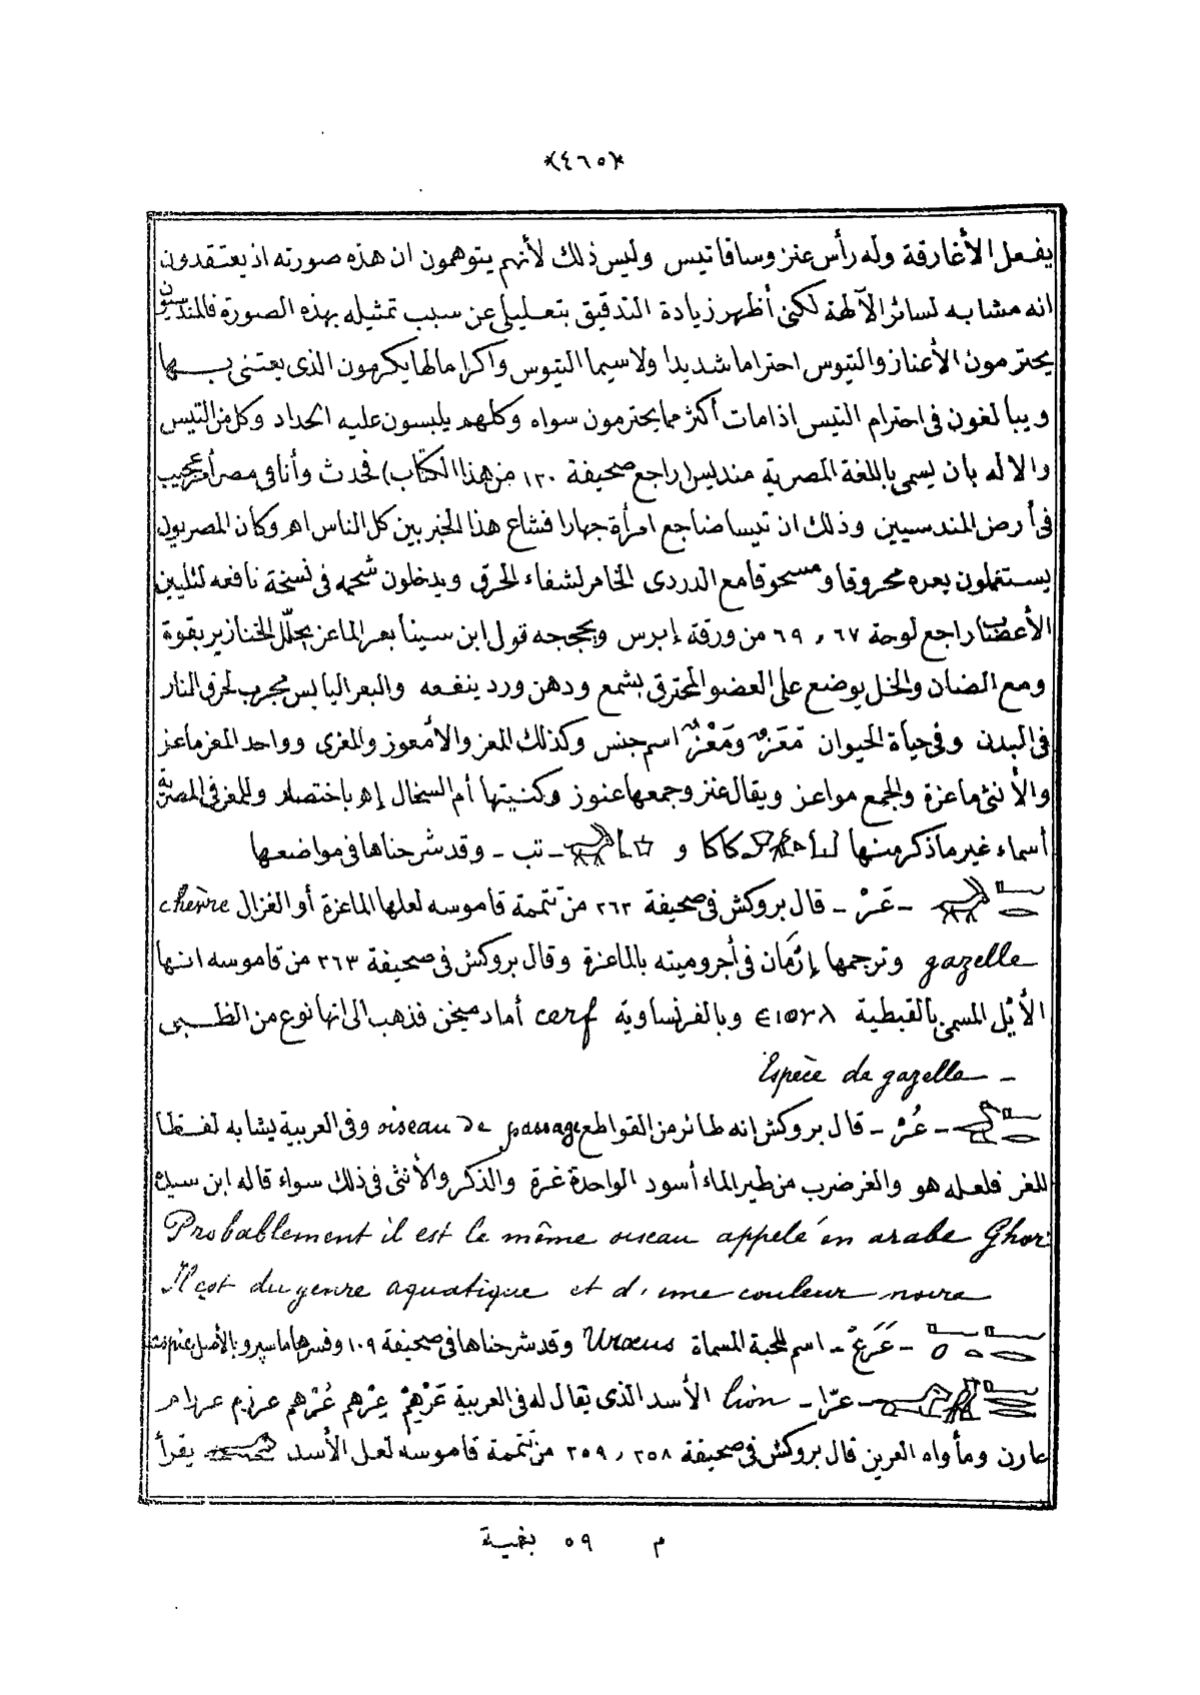 ﴿٤٦٥﴾
يفعل الأغارقة وله رأس عنز وساقا تيس وليس ذلك لأنهم يتوهمون ان هذه صورته اذ يعتقدون
انه مشابه لسائر الآلهة لكنى أظهر زيادة التدقيق بتعليلى عن سبب تمثيله بهذه الصورة فالمندسيون
يحترمون الأعناز والتيوس احتراما شديدا ولا سيما التيوس واكراما لها يكرمون الذى يعتنى بها
ويبالغون فى احترام التيس اذا مات أكثر مما يحترمون سواه وكلهم يلبسون عليه الحداد وكل من التيس
والاله بان يسمى باللغة المصرية منديس (راجع صحيفة ١٣٠ من هذا الكتاب) فحدث وأنا فى مصر أمر عجيب
فى أرض المندسيين وذلك ان تيسا ضاجع امرأة جهارا فشاع هذا الخبر بين كل الناس اهـ وكان المصريون
يستعملون بعره محروقا ومسحوقا مع الدردى الخام لشفاء الحرق ويدخلون شحمه فى نسخة نافعه لتليين
الأعصاب راجع لوحة ٦٧ ، ٦٩ من ورقة إبرس ويججه قول ابن سينا بعر الماعز يحلّل الخنازير بقوة
ومع الضان والخل يوضع على العضو المحترق بشمع ودهن ورد ينفعه والبعر اليابس مجرب لحرق النار
فى البدن وفى حياة الحيوان مَعَزٌ ومَعْزٌ اسم جنس وكذلك المعز والأمعوز والمعزى وواحد المعز ماعز
والأنثى ماعزة والجمع مواعز ويقال عنز وجمعها عنوز وكنيتها أم السخال إهـ باختصار وللمعز فى المصرية
أسماء غير ما ذكر منها كاكا و ـ تب ـ وقد شرحناها فى مواضعها
ـ عَرْ ـ قال بروكش فى صحيفة ٢٦٣ من تتمة قاموسه لعلها الماعزة أو الغزال chèvre
gazelle وترجمها إرمان فى أجروميته بالماعزة وقال بروكش فى صحيفة ٣٦٣ من قاموسه انها
الأيّل المسمى بالقبطية ⲉⲓⲟⲩⲗ وبالفرنساوية cerf أما دميخن فذهب الى انها نوع من الظبى
Espèce de gazelle ـ
ـ عُرْ ـ قال بروكش إنه طائر من القواطع oiseau de passage وفى العربية يشابه لفظا
للغر فلعله هو والغر ضرب من طير الماء أسود الواحدة غرة والذكر والأنثى فى ذلك سواء قاله ابن سيده
Probablement il est le même oiseau appelé en arabe Ghor
Il est du genre aquatique et d'une couleur noire
ـ عَرَعْ ـ اسم للحية المسماة Uræus وقد شرحناها فى صحيفة ١٠٩ وفسرها ماسپرو بالأصل aspic
ـ عرّا ـ lion الأسد الذى يقال له فى العربية عَرْهِمْ عِرْهم عُرْهم عرزم
عارن ومأواه العرين قال بروكش فى صحيفة ٢٥٨ ، ٢٥٩ من تتمة قاموسه لعل الأسد يقرأ
م ٥٩ بغية